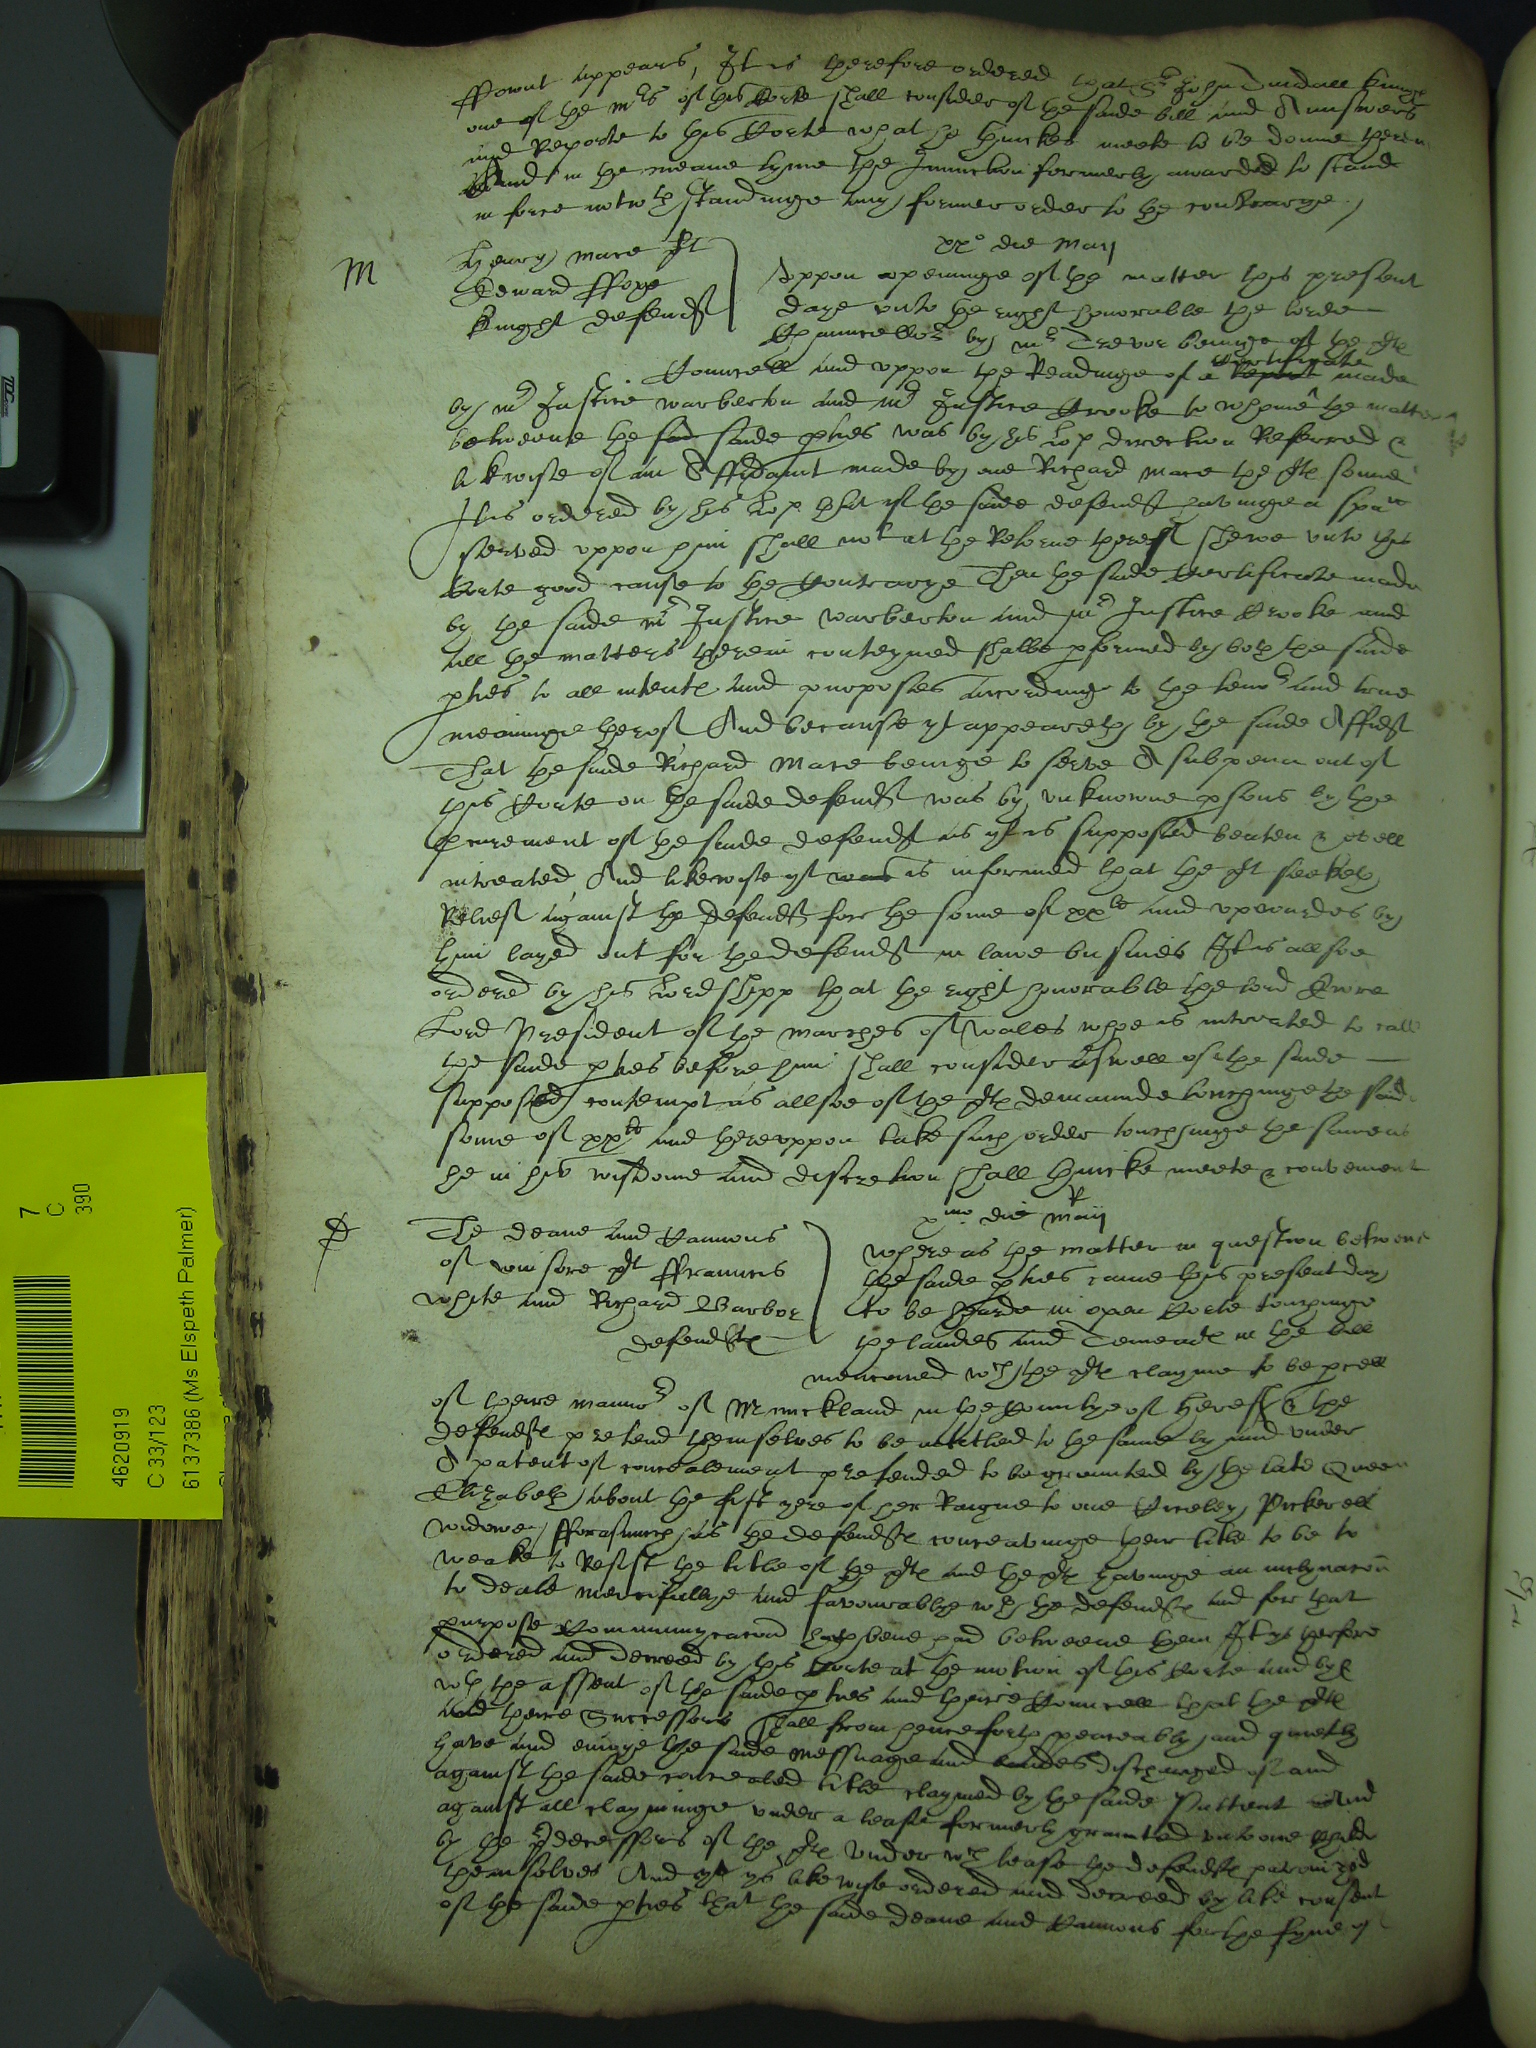 ffowut appears, It is therefore ordered that Sr John Tindall knight
one of the mrs of this Corte shall consider of the saide bill and Answers
and Reporte to this Corte what he thinkes meete to be donne therin
And in the meane tyme the Iniunction formerly awarded to stand
in force notwthstandinge any former order to the contrarye /
xxo die Maij
M
Henry Mare plt
Edward ffoxe
knight defendt
Uppon openinge of the matter this present
daye unto the right honorable the lorde
Chauncellor by mr Trevor beinge of the plts
Councell and uppon the Readinge of a Report Certificate made
by mr Justice warberton and mr Justice Crooke to whome the matter
betweene the sad saide pties was by his Lop direction Referred &
likwise of an Affidavit made by one Richard Mare the plts sonne
It is ordered by his Lop that yf the saide defendt havinge a spa
served uppon him shall not at the Retorne therof shewe unto this
Corte good cause to the Contrarye Then the saide Certificate made
by the saide mr Justice warberton and mr Justice Crooke and
all the matters therein conteyned shalbe pformed by both the saide
pties to all intents and purposes accordinge to the tenor and true
meaninge therof And because yt appeareth by the saide Affidt
That the saide Richard Mare beinge to serve A subpena out of
this Corte on the saide defendt was by unknowne psons by the
procurement of the saide defendt as yt is supposed beaten & evell
intreated, And likewise yt was is informed that the plt seeketh
Relief against the defendt for the some of xxli and upwardes by
him layed out for the defendt in lawe busines It is allsoe
ordered by his Lordshipp that the right honorable the lord Eure
Lord President of the marches of Wales whoe is intreated to call
the saide pties before him shall consider aswell of the saide
supposed contempt as allsoe of the plts demaunde touchinge the said
some of xxli and thereuppon take such order touchinge the same as
he in his wisdome and discretion shall thincke meete & convenient
R
pmo die Maij
D
The deane and Cannons
of winsore plt ffrauncis
white and Richard Barbor
defendts
Whereas the matter in question betweene
the saide pties came this present day
to be harde in open Corte touchinge
the landes and Tenemts in the bill
mencioned wch the plts clayme to be pcell
of theire mannor of Mrunckland in the Countye of Heref & the
defendts pretend themselves to be intitled to the same by and under
A patent of concealement pretended to be graunted by the late Queen
Elizabeth about the first yere of her Raigne to one Ciceley Pickerell
widowe, fforasmuch as the defendts conceavinge their title to be to
weake to Resist the title of the plts and the plts havinge an inclynacon
to deale mercifullye and favourablye wth the defendts and for that
purpose Communycacion hath bene had betweene them It ys therfore
ordered and decreed by this Corte at the motion of this Corte and by
wth the assent of the saide pties and theire Councell that the plts
and theire Successors shall from henceforth peaceably and quietly
have and enioye the saide messuage and landes discharged of and
against the saide concealed title claymed by the saide Pattent and
against all clayminge under a lease formerly graunted unto one
by the predecessors of the plts under wch lease the defendts
themselves And yt ys likewise ordered and decreed by like consent
of the saide pties that the saide deane and Cannons for the fyne of
7
C
390
4620919
C 33/123
6137386 (Ms Elspeth Palmer)